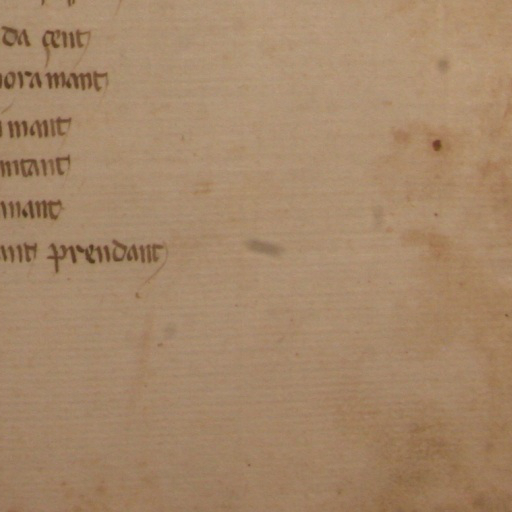 da çent
oramant
mant
ntant
mant
ant prendant